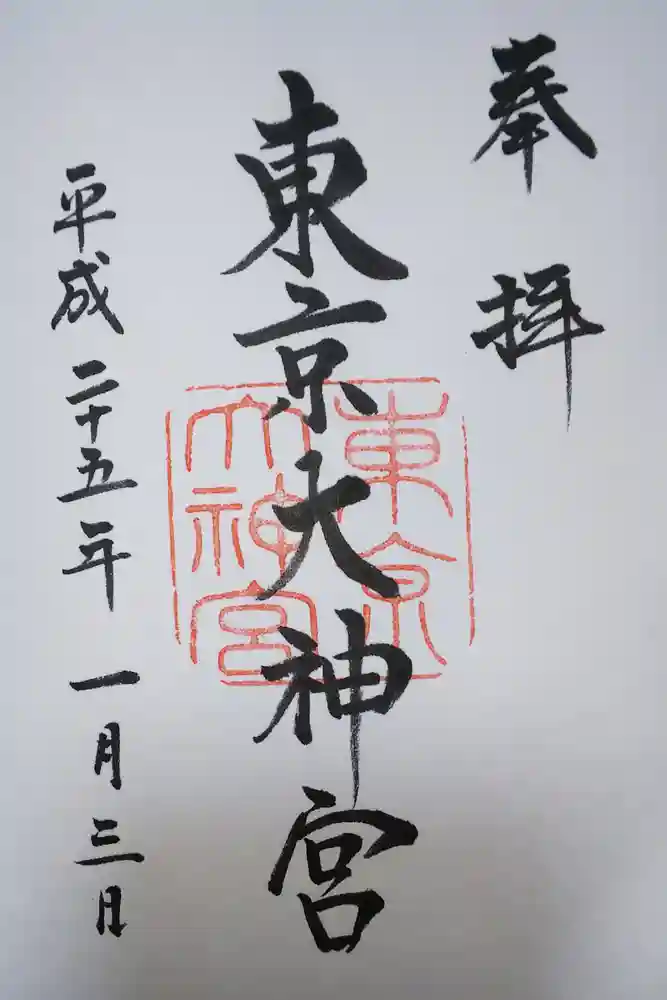 奉拝
東京大神宮
東京
大神宮
平成二十五年一月三日